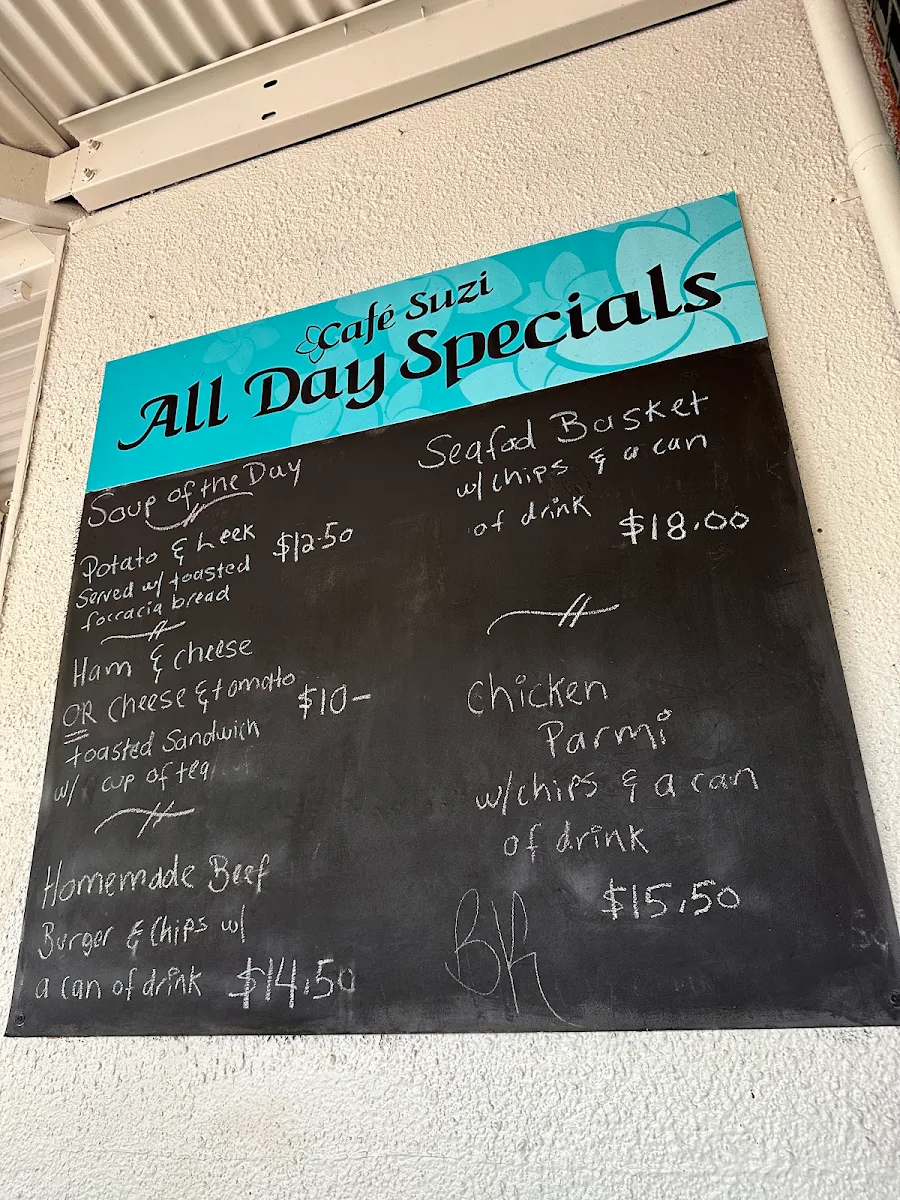 Café Suzi
All Day Specials
Soup of the Day
Potato & Leek $12.50
Served w/ toasted
foccacia bread
Ham & cheese
OR cheese & tomato $10-
toasted Sandwich
w/ cup of tea
Homemade Beef
Burger & Chips w/
a can of drink $14.50
Seafod Basket
w/ chips & a can
of drink
$18.00
Chicken
Parmi
w/chips & a can
of drink
$15.50
BK